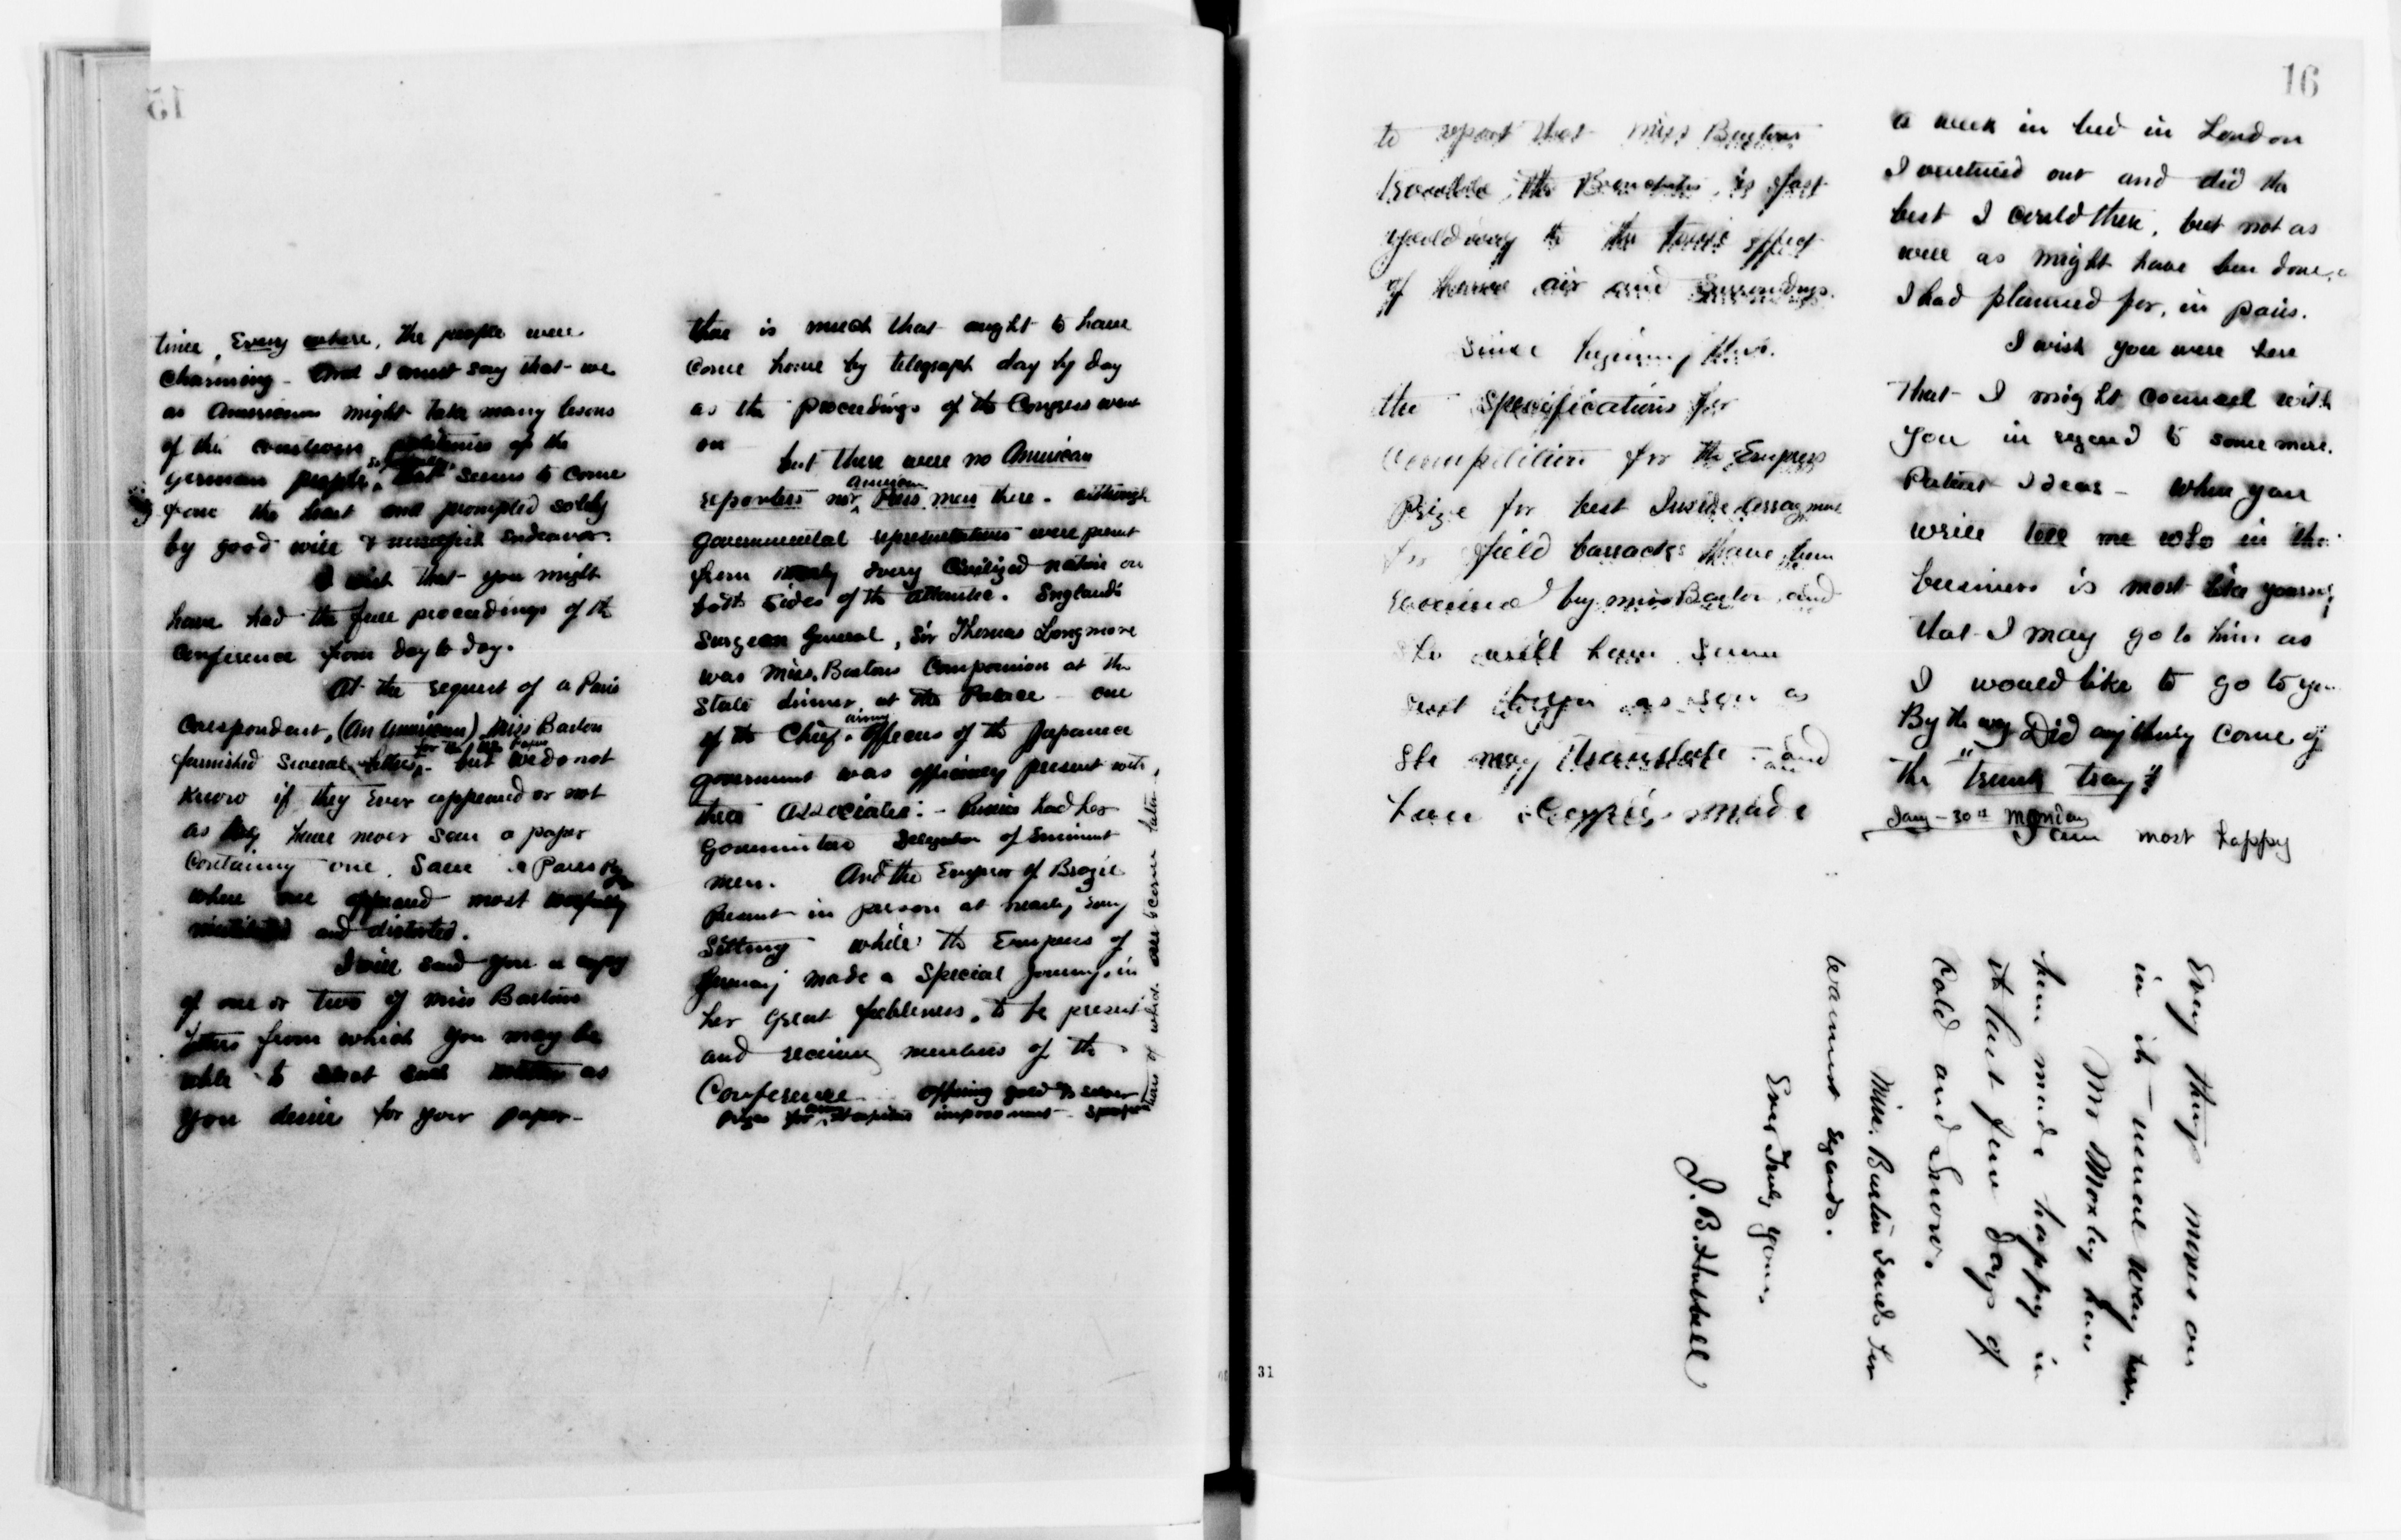 15
time, Every where, the people were
charming - And I must say that we
as Americans might take many lesons
of the courteous politeness of the
german people, that seems to come
from the heart and prompted solely
by good will & unselfish endeavor.
I wish that you might
have had the full proceedings of the
Conference from day to day.
At the request of a Paris
Correspondent, (An American) Miss Barton
for the
furnished several letters - but we do not
know if they ever appeared or not
as they have never seen a paper
containing one. Save a Paris
where one appeared most woefully
mutilated and distorted.
I will send you a copy
of one or two of Miss Bartons
letters from which you may be
able to select such matter as
you desire for your paper -
there is much that ought to have
come home by telegraph day by day
as the proceedings of the Congress went
on
but there were no American
american
reporters nor Press men there. although
governmental representatives were present
from nearly every civilized nation on
both sides of the atlantic. England's
Surgeon General, Sir Thomas Longmore
was Miss. Bartons Companion at the
State dinner at the Palace - one
army
of the Chief officers of the Japanese
government was officially present with
three associates: - Russia had her
Delegation of Eminent
men. And the Emperor of Brazil
Present in person at nearly every
Sitting while the Empress of
Germany made a special journey, in
her great feebleness, to be present
and receive members of the
Conference offering gold & silver
prizes for Hospital improvement
of which
16
to report that Miss Bartons
trouble, the Bronchitis, is fast
yielding to the tonic effect
of home air and surroundings.
Since begining this.
the Specifications for
Competition for the Empress
Prize for best Inside arragment
for field barracks have been
received by Miss Barton and
she will have some
sent to you as soon as
she may translate - and
have copies made
a week in bed in London
I ventured out and did the
best I could there, but not as
well as might have ben done,
I had planned for, in paris.
I wish you were here
that I might counsel with
you in regard to some more.
Patent Ideas - when you
write tell me who in the
business is most like yourself
that I may go to him as
I would like to go to you
By the way Did anything come of
the "trunk tray"?
Jany - 30th Monday
I am most happy
Every thing moves on
in its usual way here.
Mr Morley has
been made happy in
its last few days of
Cold and Snow.
Miss. Barton sends her
warmest regards.
Ever Truly yours.
J. B. Hubbell
31